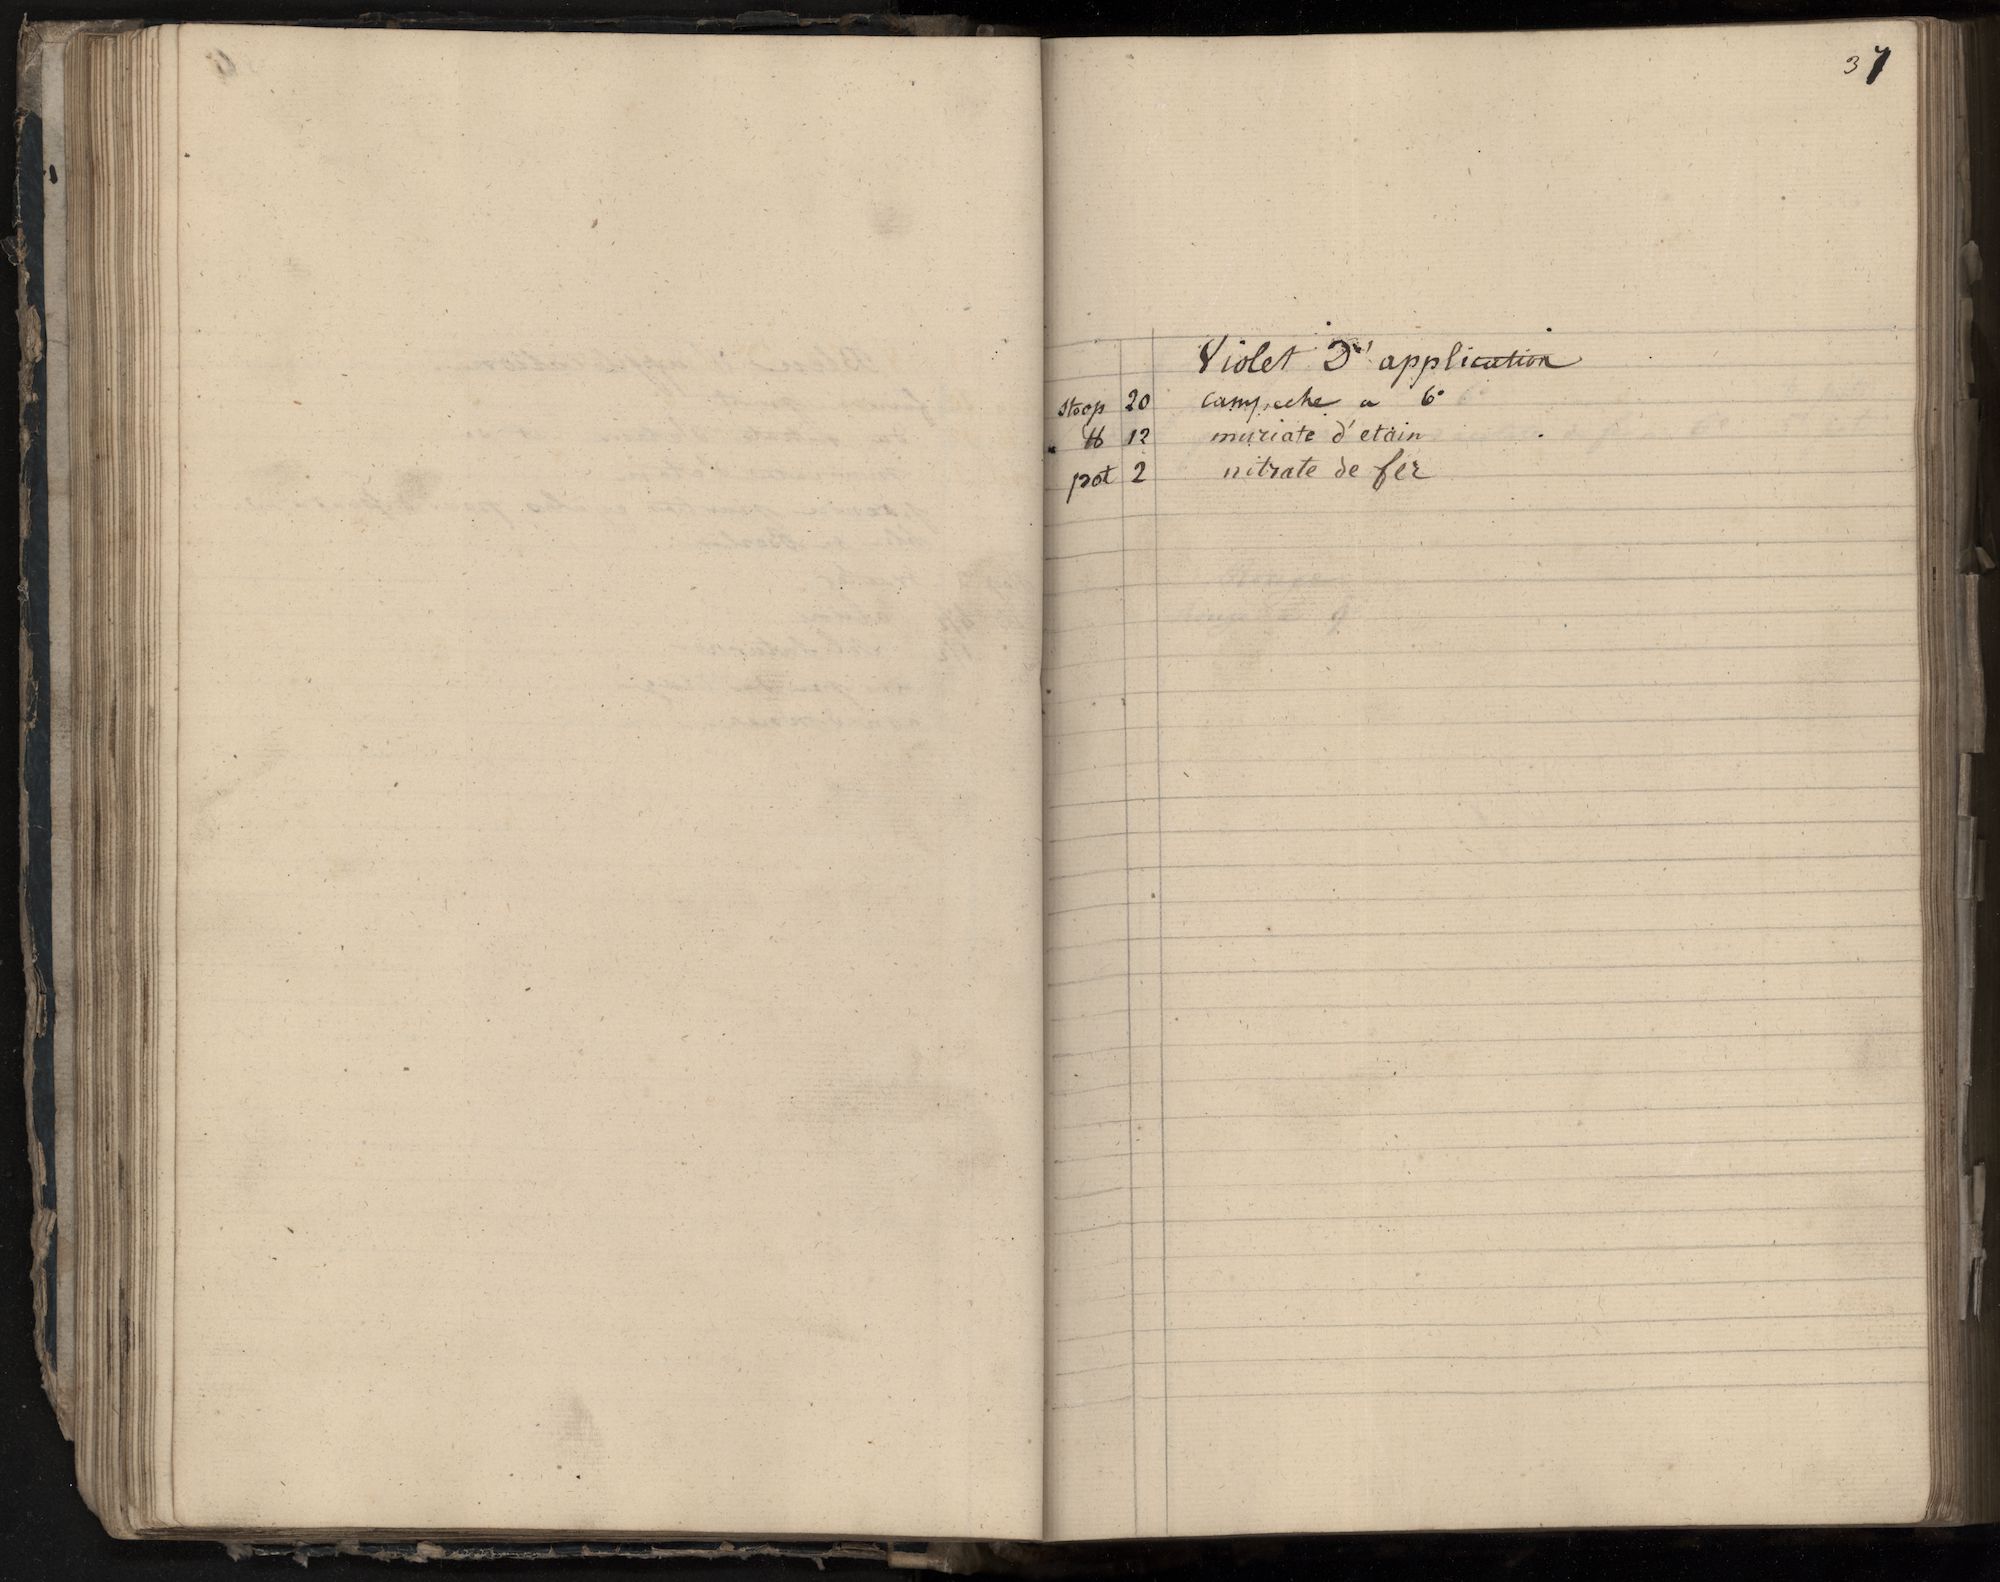 37
Violet D'application
stoop 20 campeche a 6°
℔ 12 muriate d'etain
pot 2 nitrate de fer